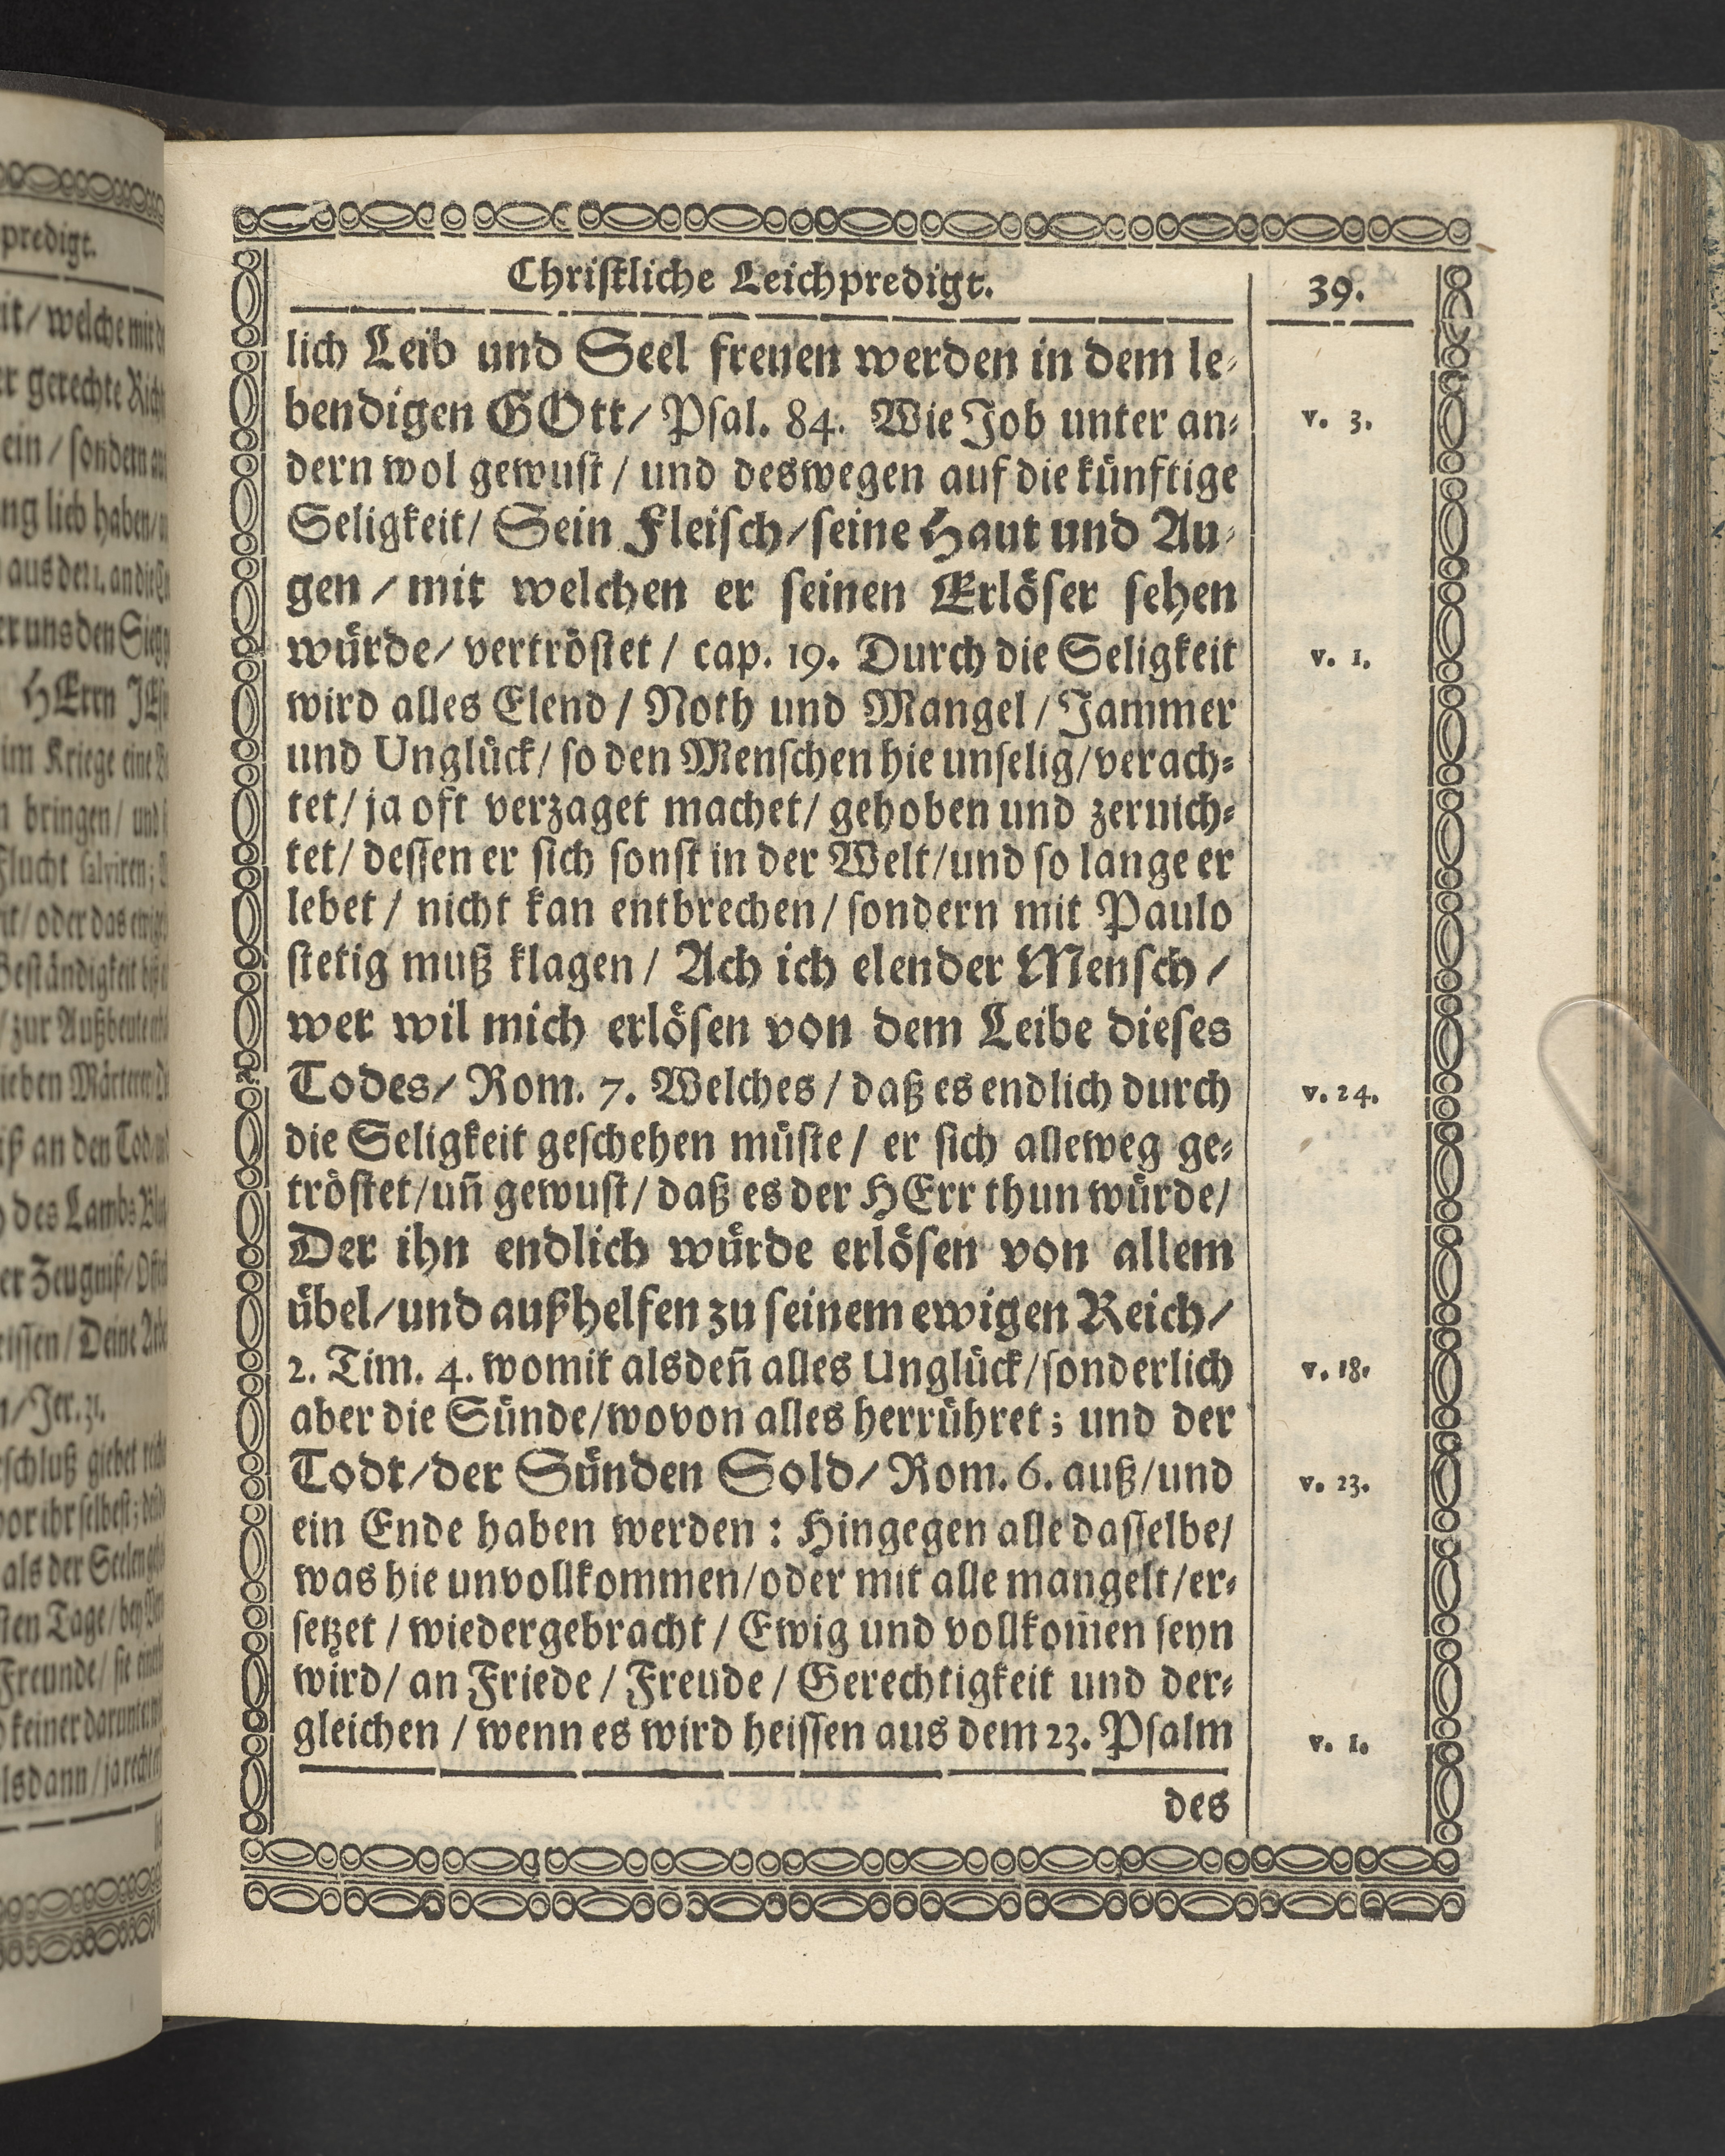 Christliche Leichpredigt. 39.
lich Leib und Seel freuen werden in dem le-
bendigen GOtt/ Psal. 84. Wie Job unter an- v. 3.
dern wol gewust / und deswegen auf die künftige
Seligkeit/ Sein Fleisch/seine Haut und Au-
gen / mit welchen er seinen Erlöser sehen
würde/ vertröstet / cap. 19. Durch die Seligkeit v. 1.
wird alles Elend / Noth und Mangel / Jammer
und Unglück/ so den Menschen hie unselig/verach-
tet/ ja oft verzaget machet/ gehoben und zernich-
tet/ dessen er sich sonst in der Welt/und so lange er
lebet / nicht kan entbrechen/ sondern mit Paulo
stetig muß klagen / Ach ich elender Mensch /
wer wil mich erlösen von dem Leibe dieses
Todes/ Rom. 7. Welches / daß es endlich durch v. 24.
die Seligkeit geschehen müste / er sich alleweg ge-
tröstet/uñ gewust/ daß es der HErr thun würde/
Der ihn endlich würde erlösen von allem
übel/und außhelfen zu seinem ewigen Reich/
2. Tim. 4. womit alsdeñ alles Unglück/sonderlich v. 18.
aber die Sünde/wovon alles herrühret; und der
Todt/der Sünden Sold/ Rom. 6. auß/und v. 23.
ein Ende haben werden : Hingegen alle dasselbe/
was hie unvollkommen/oder mit alle mangelt/er-
setzet / wiedergebracht / Ewig und vollkom̃en seyn
wird/ an Friede / Freude / Gerechtigkeit und der-
gleichen / wenn es wird heissen aus dem 23. Psalm v. 1.
des